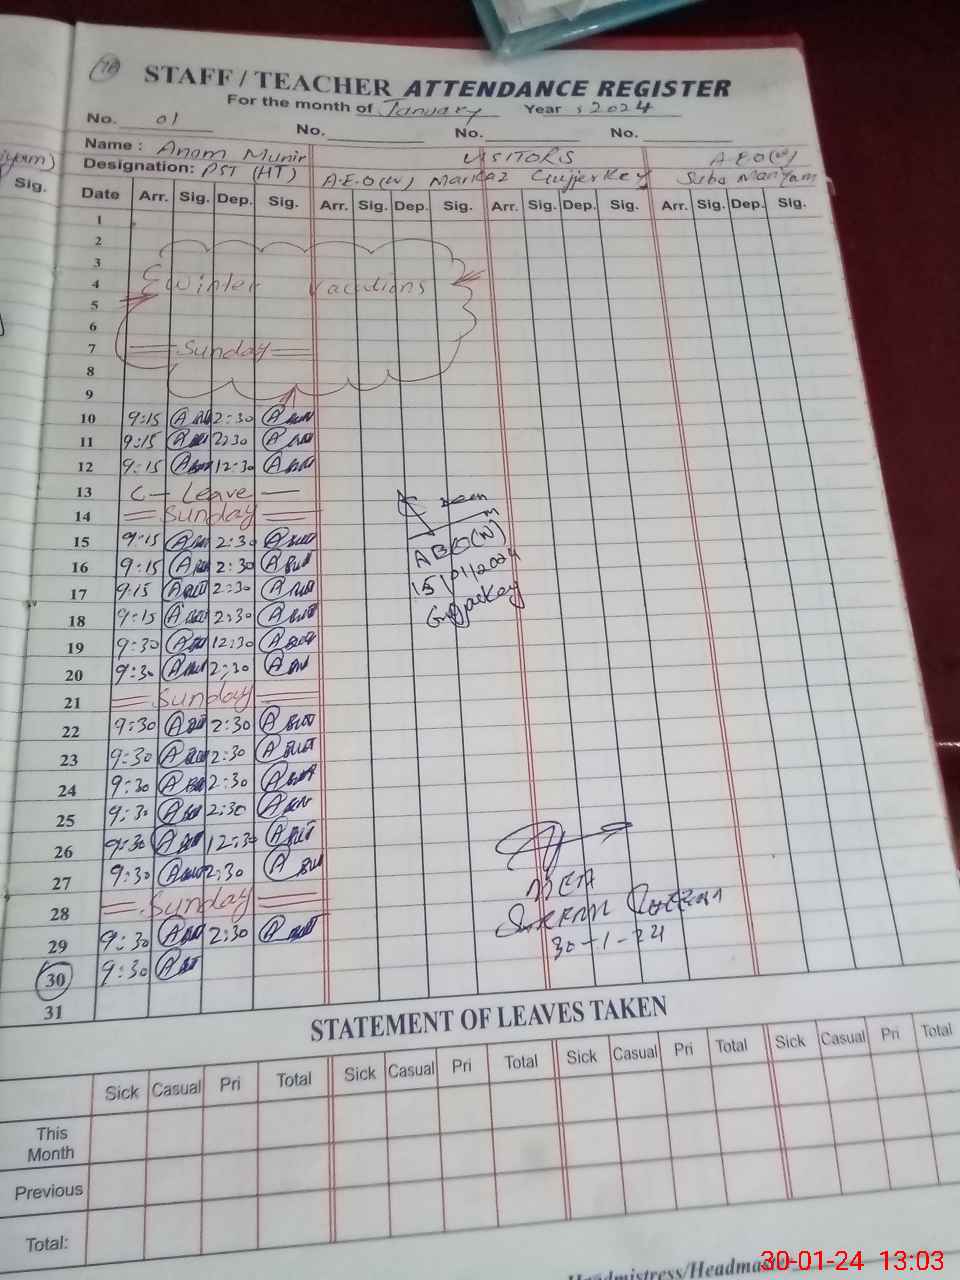 STAFF / TEACHER ATTENDANCE REGISTER
For the month of January Year 2024
No. 01 No. No. No.
Name : Anam Munir VISITORS A.E.O(W)
Designation: PST (HT) A.E.O(W) Markaz Gujjerkey Saba Mariyam
Sig. Date Arr. Sig. Dep. Sig. Arr. Sig. Dep. Sig. Arr. Sig. Dep. Sig. Arr. Sig. Dep. Sig.
1
2
3
4 Winter Vacations
5
6
7 Sunday
8
9
10 9:15 2:30
11 9:15 2:30
12 9:15 12:30
13 C - Leave -
14 Sunday
15 9:15 2:30
16 9:15 2:30
17 9:15 2:30
18 9:15 2:30
19 9:30 12:30
20 9:30 2:30
21 Sunday
22 9:30 2:30
23 9:30 2:30
24 9:30 2:30
25 9:30 2:30
26 9:30 12:30
27 9:30 2:30
28 Sunday
29 9:30 2:30
30 9:30
31
seen
15/01/2024
MEA
30-1-24
STATEMENT OF LEAVES TAKEN
Sick Casual Pri Total Sick Casual Pri Total Sick Casual Pri Total Sick Casual Pri Total
This
Month
Previous
Total:
30-01-24 13:03